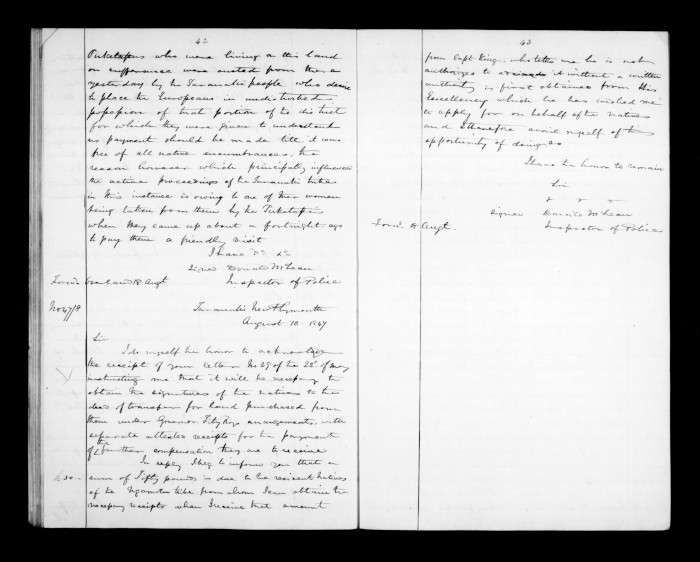 42
Puketapus who were living on this land
on sufferance were ousted from there
yesterday by the Taranaki people who desire
to place the Europeans in undisturbed
possession of that portion of the district
for which they were given to understand
no payment should be made till it was
free of all native encumbrances, the
reason however which principally influenced
the active proceedings of the Taranaki tribe
in this instance is owing to one of their women
being taken from them by the Puketapus
when they came up about a fortnight ago
to pay them a friendly visit
I have &c &c
Signed Donald McLean
Inspector of Police
Forwd. Overland 18 Augt
No 47/18
Taranaki New Plymouth
August 10 - 1847
Sir
I do myself the honor to acknowledge
the receipt of your letter No 29 of the 22d. of May
instructing me that it will be necessary to
obtain the signatures of the natives to the
deed of transfer for land purchased from
them under Governor FitzRoys arrangements, with
separate attested receipts for the payment
of the further compensation they are to receive
In reply I beg to inform you that a
£50 -
sum of Fifty pounds is due to the resident natives
of the Ngamotu tribe from whom I can obtain the
necessary receipts when I receive that amount
43
from Capt King, who tells me he is not
authorized to it without a written
authority is first obtained from His
Excellency which he has wished me
to apply for on behalf of the natives
and I therefore avail myself of the
opportunity of doing so
I have the honor to remain
Sir
Signed Donald McLean
Inspector of Police
Forwd. Augt.